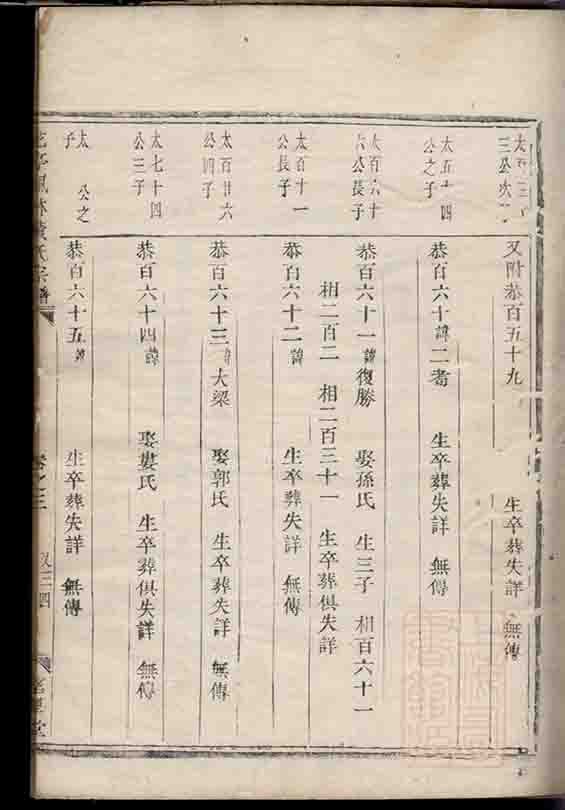 三公次
又附恭百五十九 生卒葬失詳 無傳
太五十四
公之子
恭百六十諱二耈 生卒葬失詳 無傳
太百六十
六公長子
恭百六十一諱復勝 娶孫氏 生三子 相百六十一
相二百二 相二百三十一 生卒葬俱失詳
太百十一
公長子
恭百六十二諱 生卒葬失詳 無傳
太百廿六
公四子
恭百六十三諱大梁 娶郭氏 生卒葬失詳 無傳
太七十四
公三子
恭百六十四諱 娶婁氏 生卒葬俱失詳 無傳
太 公之
子
恭百六十五諱 生卒葬失詳 無傳
氏宗譜
又三四
堂